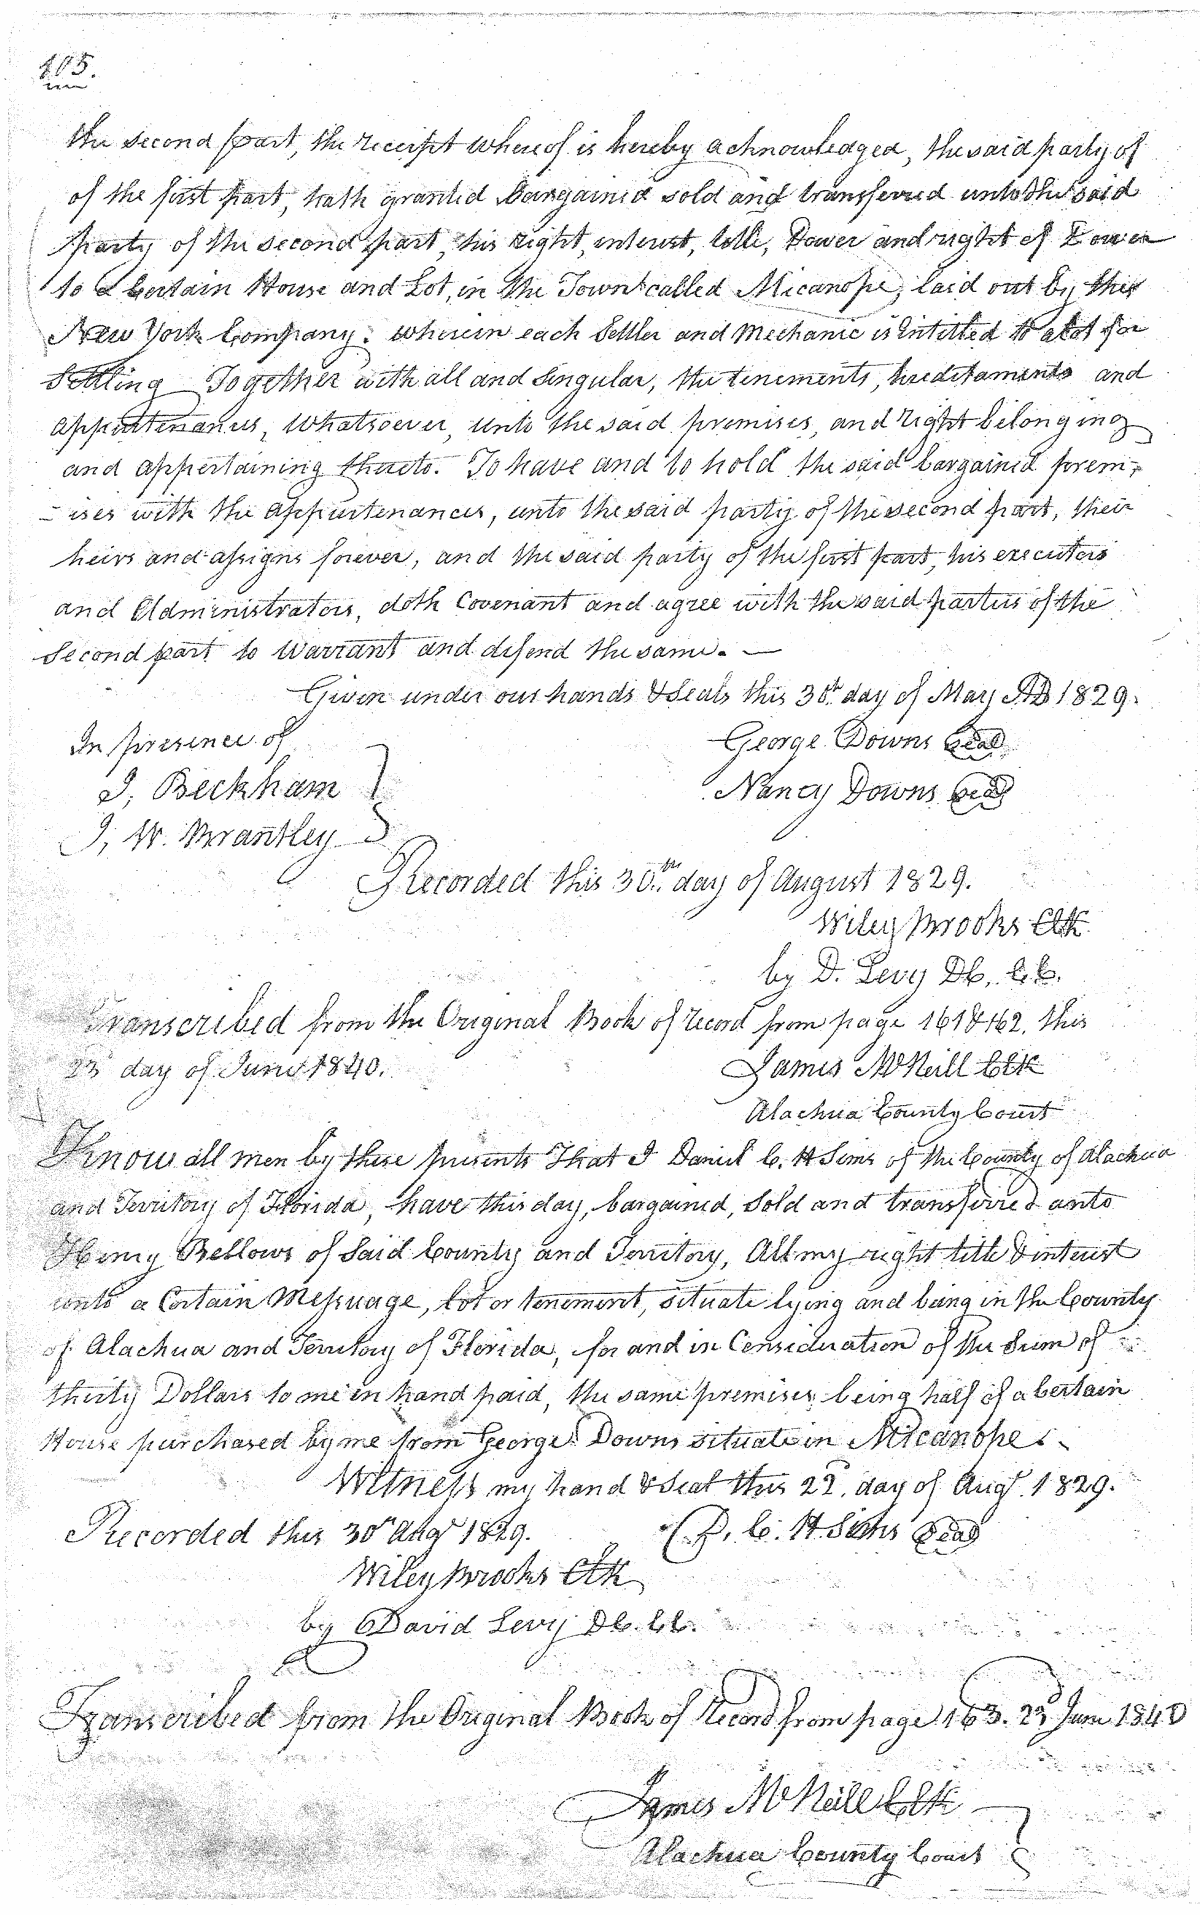 105.
the second part, the receipt whereof is hereby acknowledged, the said party of
of the first part, hath granted bargained sold and transferred unto the said
party of the second part, his right, interest, title, Dower and right of Dower
to a Certain House and Lot, in the Town called Micanope, laid out by the
New York Company. wherein each Settler and Mechanic is Entitled to a Lot for
Settling Together with all and singular, the tenements, hereditaments and
appurtenances, whatsoever, unto the said premises, and right belonging
and appertaining thereto. To have and to hold the said bargained prem-
- ises with the appurtenances, unto the said party of the second part, their
heirs and assigns forever, and the said party of the first part, his executors
and Administrators, doth Covenant and agree with the said parties of the
Second part to Warrant and defend the same. —
Given under our hands & Seals this 30th day of May AD 1829.
In presence of George Downs Seal
J. Beckham } Nancy Downs Seal
J. W. Brantley
Recorded this 30th day of August 1829.
Wiley Brooks Clk
by D. Levy D.C. C.C.
Transcribed from the Original Book of record from page 161 & 162. this
23d day of June 1840. James McNeill Clk
Alachua County Court
Know all men by these presents That I Daniel C. H Sims of the County of Alachua
and Territory of Florida, have this day, bargained, Sold and transferred unto
Henry Bellows of Said County and Territory, All my right title & interest
unto a Certain Messuage, lot or tenement, situate lying and being in the County
of Alachua and Territory of Florida, for and in Consideration of the Sum of
thirty Dollars to me in hand paid, the same premises being half of a Certain
House purchased by me from George Downs situate in Micanope.
Witness my hand & Seal this 22d. day of Augt. 1829.
Recorded this 30th Augt 1829. D. C. H Sims Seal
Wiley Brooks Clk
by David Levy D.C. C.C.
Transcribed from the Original Book of Record from page 163. 23d June 1840
James McNeill Clk
Alachua County Court